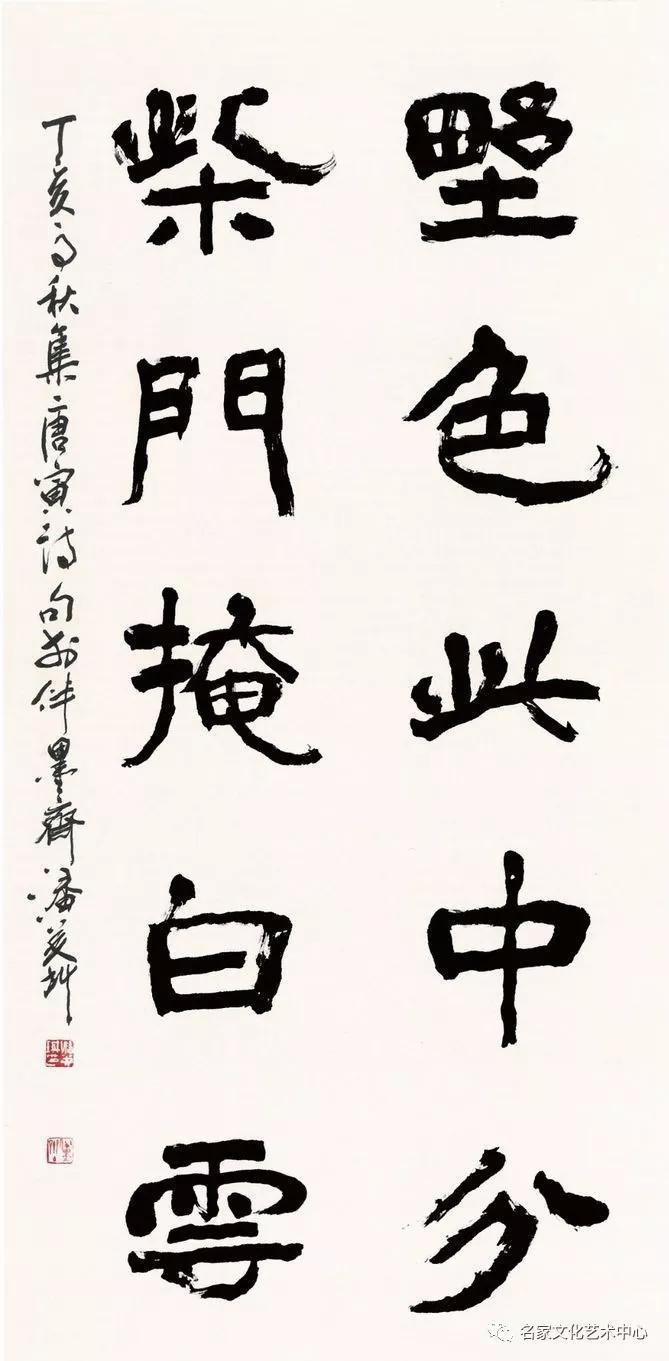 野色此中分
柴門掩白雲
丁亥秋集唐寅詩句於伴墨齋潘
名家文化艺术中心